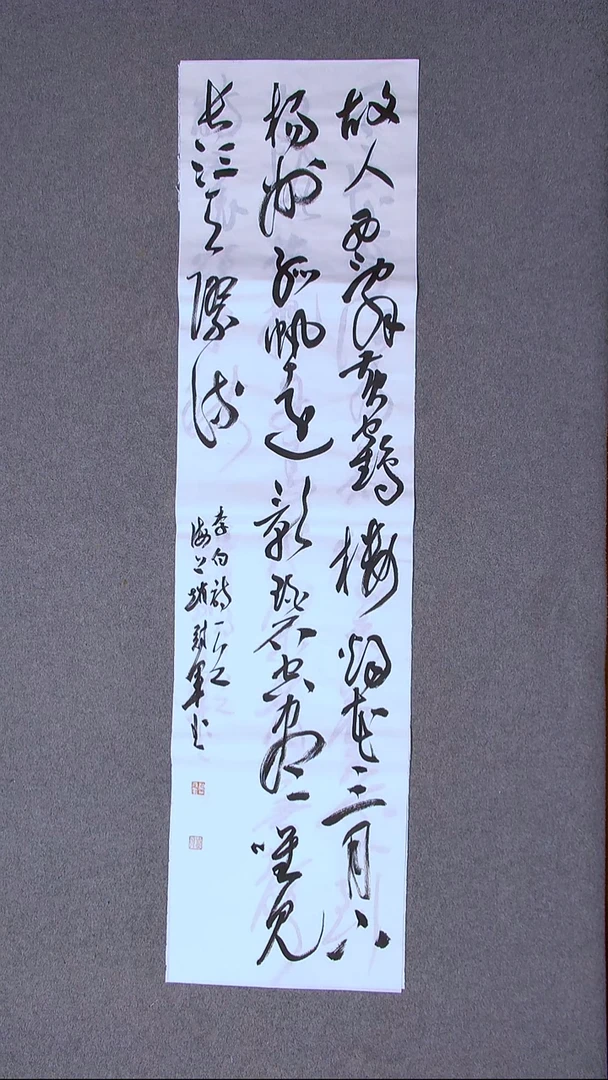 故人西辞黄鹤楼烟花三月下
扬州孤帆远影碧空尽唯见
长江天际流
李白诗一首
海上 赵 军书